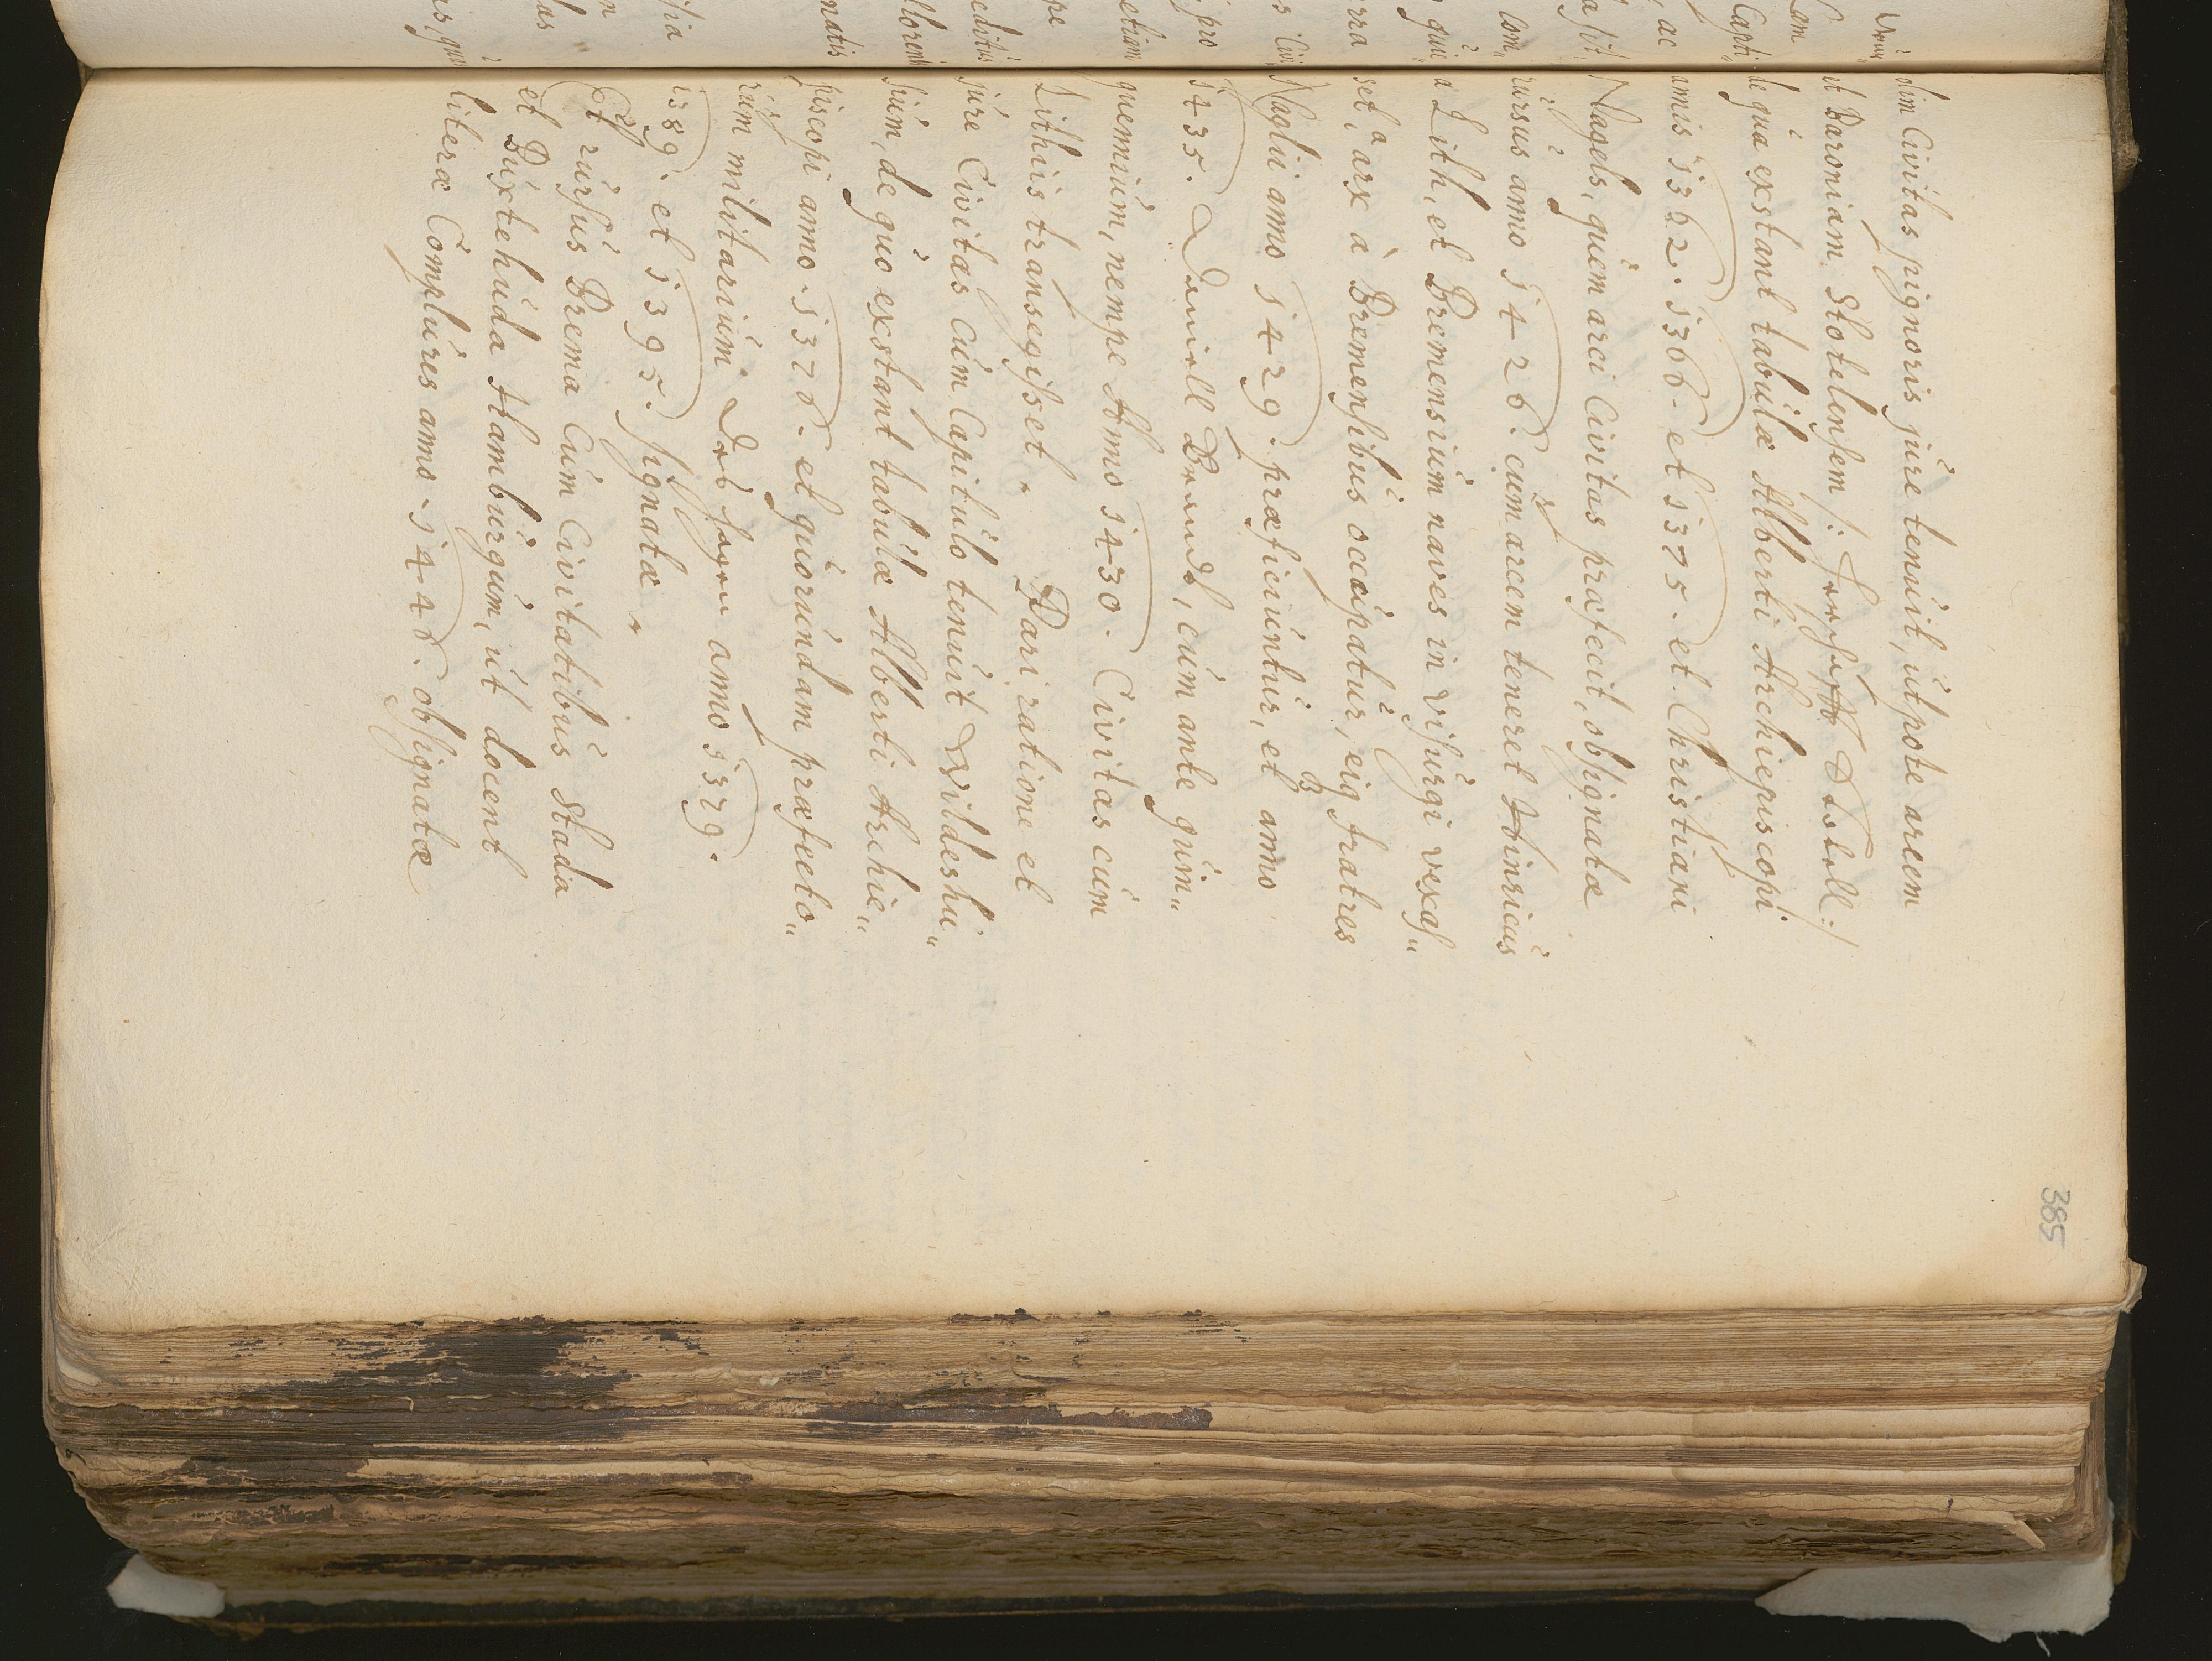 385
olim Civitas pignoris jure tenuit, utpote arcem
et Baroniam Stotelensem /: Herschafft Stotell :/
de qua exstant tabulæ Alberti Archiepiscopi
annis 1362. 1366. et 1375. et Christiani
Nagels, quem arci Civitas præfecit, obsignatæ
rursus anno 1426. cum arcem teneret Hinricus
a Lith, et Bremensium naves in visurgi vexas„
set, arx à Bremensibus occupatur, eiq fratres
Naglii anno 1429. præficiuntur, et anno
1435. Daniell Brandt, cum ante quin„
quennium, nempe Anno 1430. Civitas cum
Lithiis transegisset. Pari ratione et
jure Civitas cum Capitulo tenuit Wildeshu„
sium, de quo exstant tabulæ Alberti Archie„
piscopi anno 1376. et quorundam præfecto„
rum militarium anno 1379.
1389. et 1395. signatæ.
Et rursus Brema cum Civitatibus Stada
et Buxtehuda Hamburgum, ut docent
literæ Complures anno 1446. obsignatæ